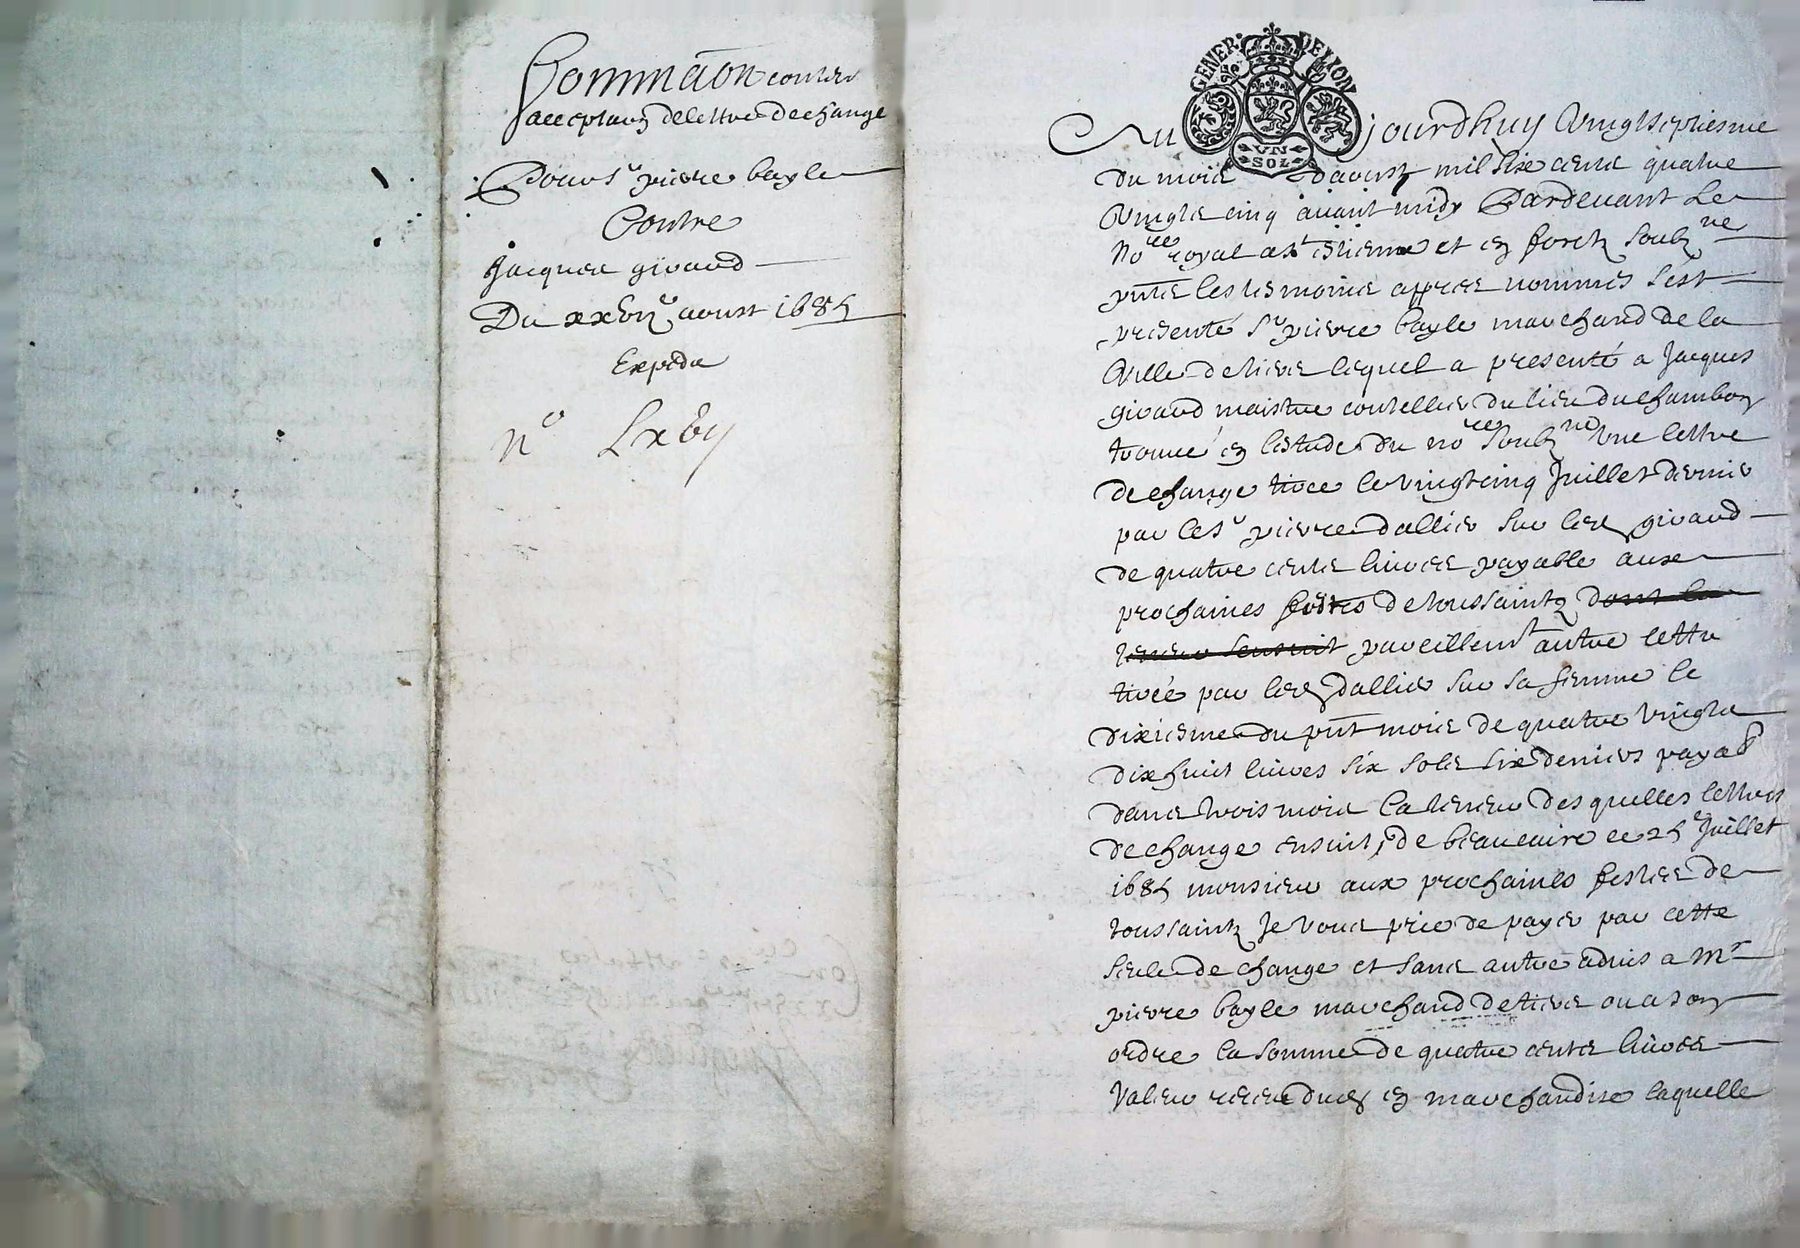 Sommaōn conten
acceptaōn de lettre de change
Pour sʳ pierre bayle
Contre
Jacques giraud
Du xxbijᵉ aoust 1685
Expedie
nº Lxbij
GENER· DE LYON
UN
SOL
Au jourdhuy vingtseptiesme
du mois daoust mil six cents quatre
vingts cinq avant midy Pardevant Le
Noʳᵉ royal a sᵗ estienne et en forestz soubzⁿᵉ
pntz les tesmoins appres nommés sest
presenté sʳ pierre bayle marchand de la
ville de thiers lequel a presenté a Jacques
giraud maistre coutellier du lieu du chambon
trouvé en lestude du noʳᵉ soubzⁿᵉ une lettre
de change tiree le vingtcinq Juillet dernier
par le sʳ pierre dallier sur led giraud
de quatre cents livres payable aux
prochaines festes de toussaintz dont la
teneur sensuit pareillemᵗ autre lettre
tirée par led dallier sur sa femme le
dixiesme du pnt mois de quatre vingts
dixhuit livres six sols six deniers payabˡ
dans trois mois la teneur des quelles lettres
de change ensuit, de beaucaire ce 25ᵉ Juillet
1685 monsieur aux prochaines festes de
toussaintz Je vous prie de payer par cette
seule de change et sans autre advis a Mʳ
pierre bayle marchand de thiers ou a son
ordre la somme de quatre cents livres
valeur receue dud en marchandise laquelle